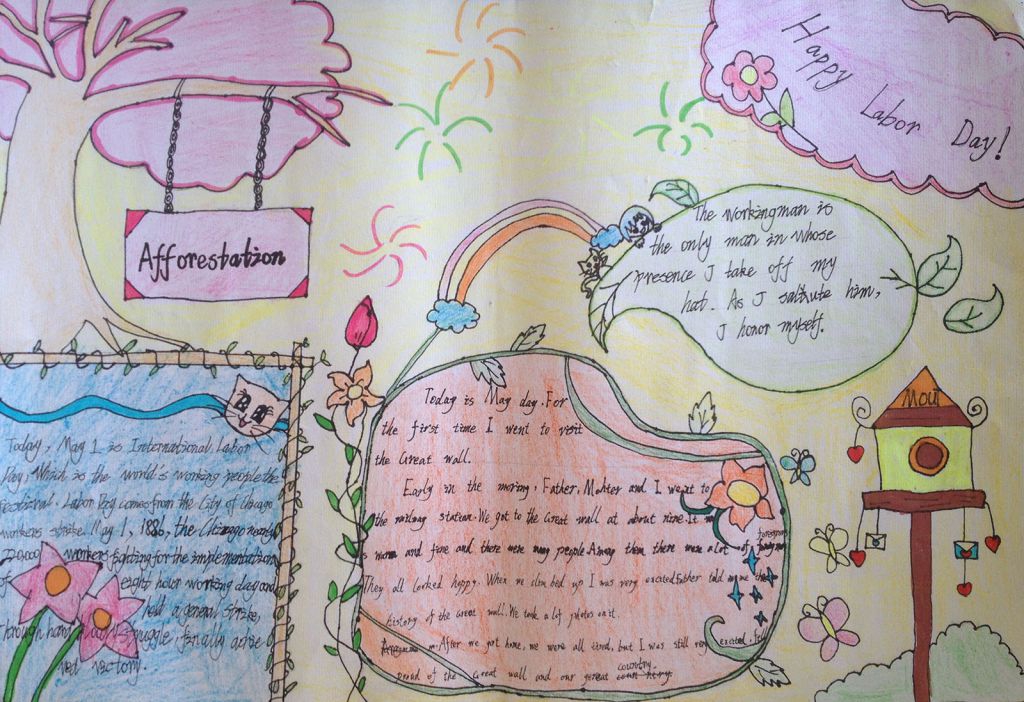 Happy
Labor
Day!
Afforestation
The workingman is
the only man in whose
presence I take off my
hat. As I saltute him,
I honor myself.
Moul
Today is May day. For
the first time I went to visit
the Great wall.
Early in the moring, Father, Mohter and I went to
the railway station. We got to the Great wall at about nine. It
warm and fine and there were many people. Among them there were a lot of
They all looked happy. When we climbed up I was very excited. Father told me the
history of the Great wall. We took a lot photos on it.
After we got home, we were all tired, but I was still very excited,
proud of the Great wall and our gereat country.
Today, May 1 is International Labor
Day, Which is the world's working people the
. Labor Day comes from the City of Chicago
workers strike. May 1, 1886, the Chicago nearly
220,000 workers fighting for the implementation
of eight hour working day and
held a general strike,
through hard struggle, finally
victory.